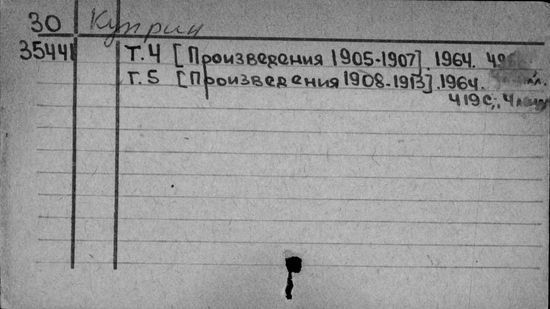 30 Куприн
35441 Т.4 [Произведения 1905-1907]. 1964.
Т.5 [Произведения 1908-1913]. 1964.
419с.,